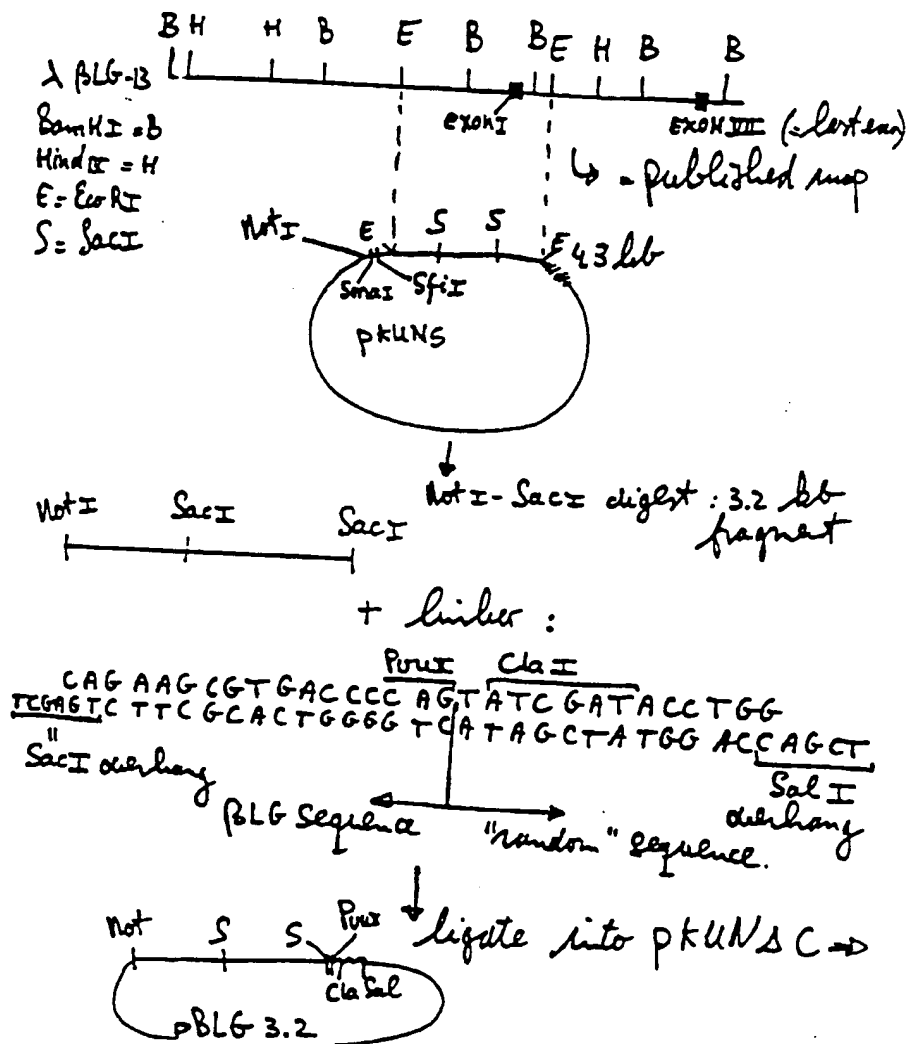 B H H B E B B E H B B
λ βLG-13
BamHI = B
HindIII = H
E = EcoRI
S = SacI
exon I
exon VII (= last exon)
↳ = published map
NotI E S S E 4.3 kb
SmaI SfiI
pKUNS
NotI-SacI digest : 3.2 kb
fragment
NotI SacI SacI
+ linker :
PvuI ClaI
CAG AAG CGT GACCCC AGT ATC GAT ACC TGG
TCGAGTC TTC GCACTGGGG TCA TAGCTATGG ACC CAGCT
"
SacI overhang
SalI
overhang
βLG Sequence
"random" sequence.
Not S S PvuI
ligate into pKUNΔC ⇒
Cla Sal
pBLG 3.2